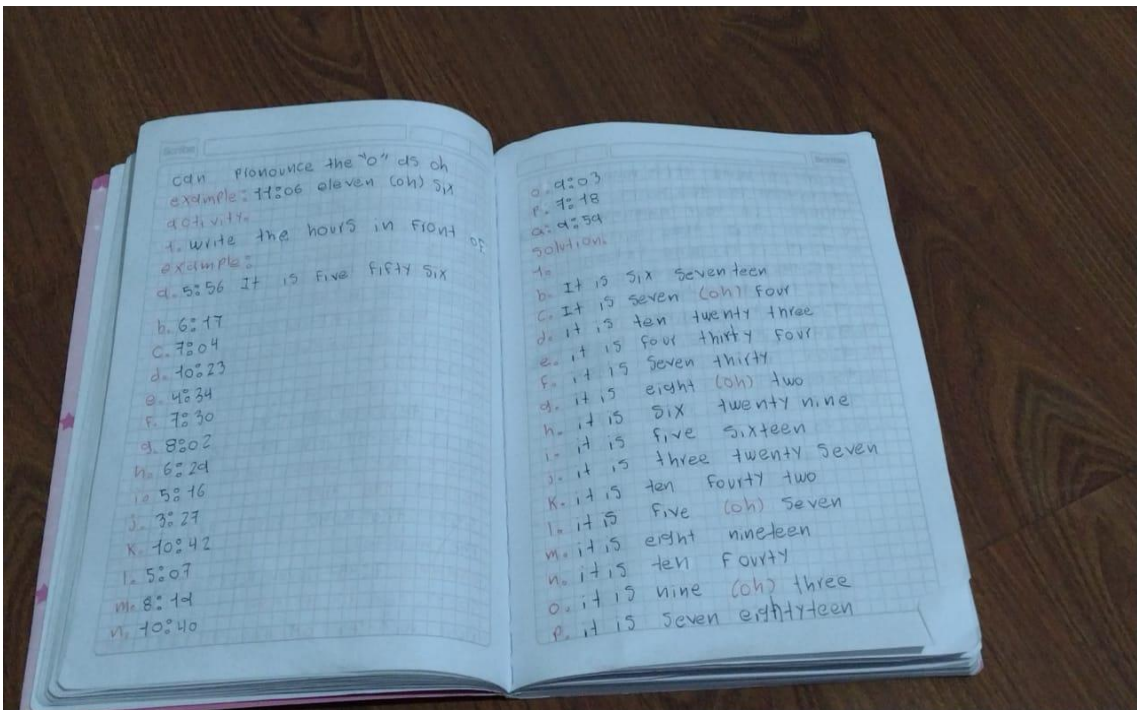 can pronounce the "0" as oh
example: 11:06 eleven (oh) six
activity.
1. write the hours in front of
example:
a. 5:56 It is five fifty six
b. 6:17
c. 7:04
d. 10:23
e. 4:34
f. 7:30
g. 8:02
h. 6:29
i. 5:16
j. 3:27
k. 10:42
l. 5:07
m. 8:19
n. 10:40
o. 9:03
p. 7:18
q: 9:59
solution:
1.
b. It is six seventeen
c. It is seven (oh) four
d. it is ten twenty three
e. it is four thirty four
f. it is seven thirty
g. it is eight (oh) two
h. it is six twenty nine
i. it is five sixteen
j. it is three twenty seven
k. it is ten fourty two
l. it is five (oh) seven
m. it is eight nineteen
n. it is ten fourty
o. it is nine (oh) three
p. it is seven eightyteen